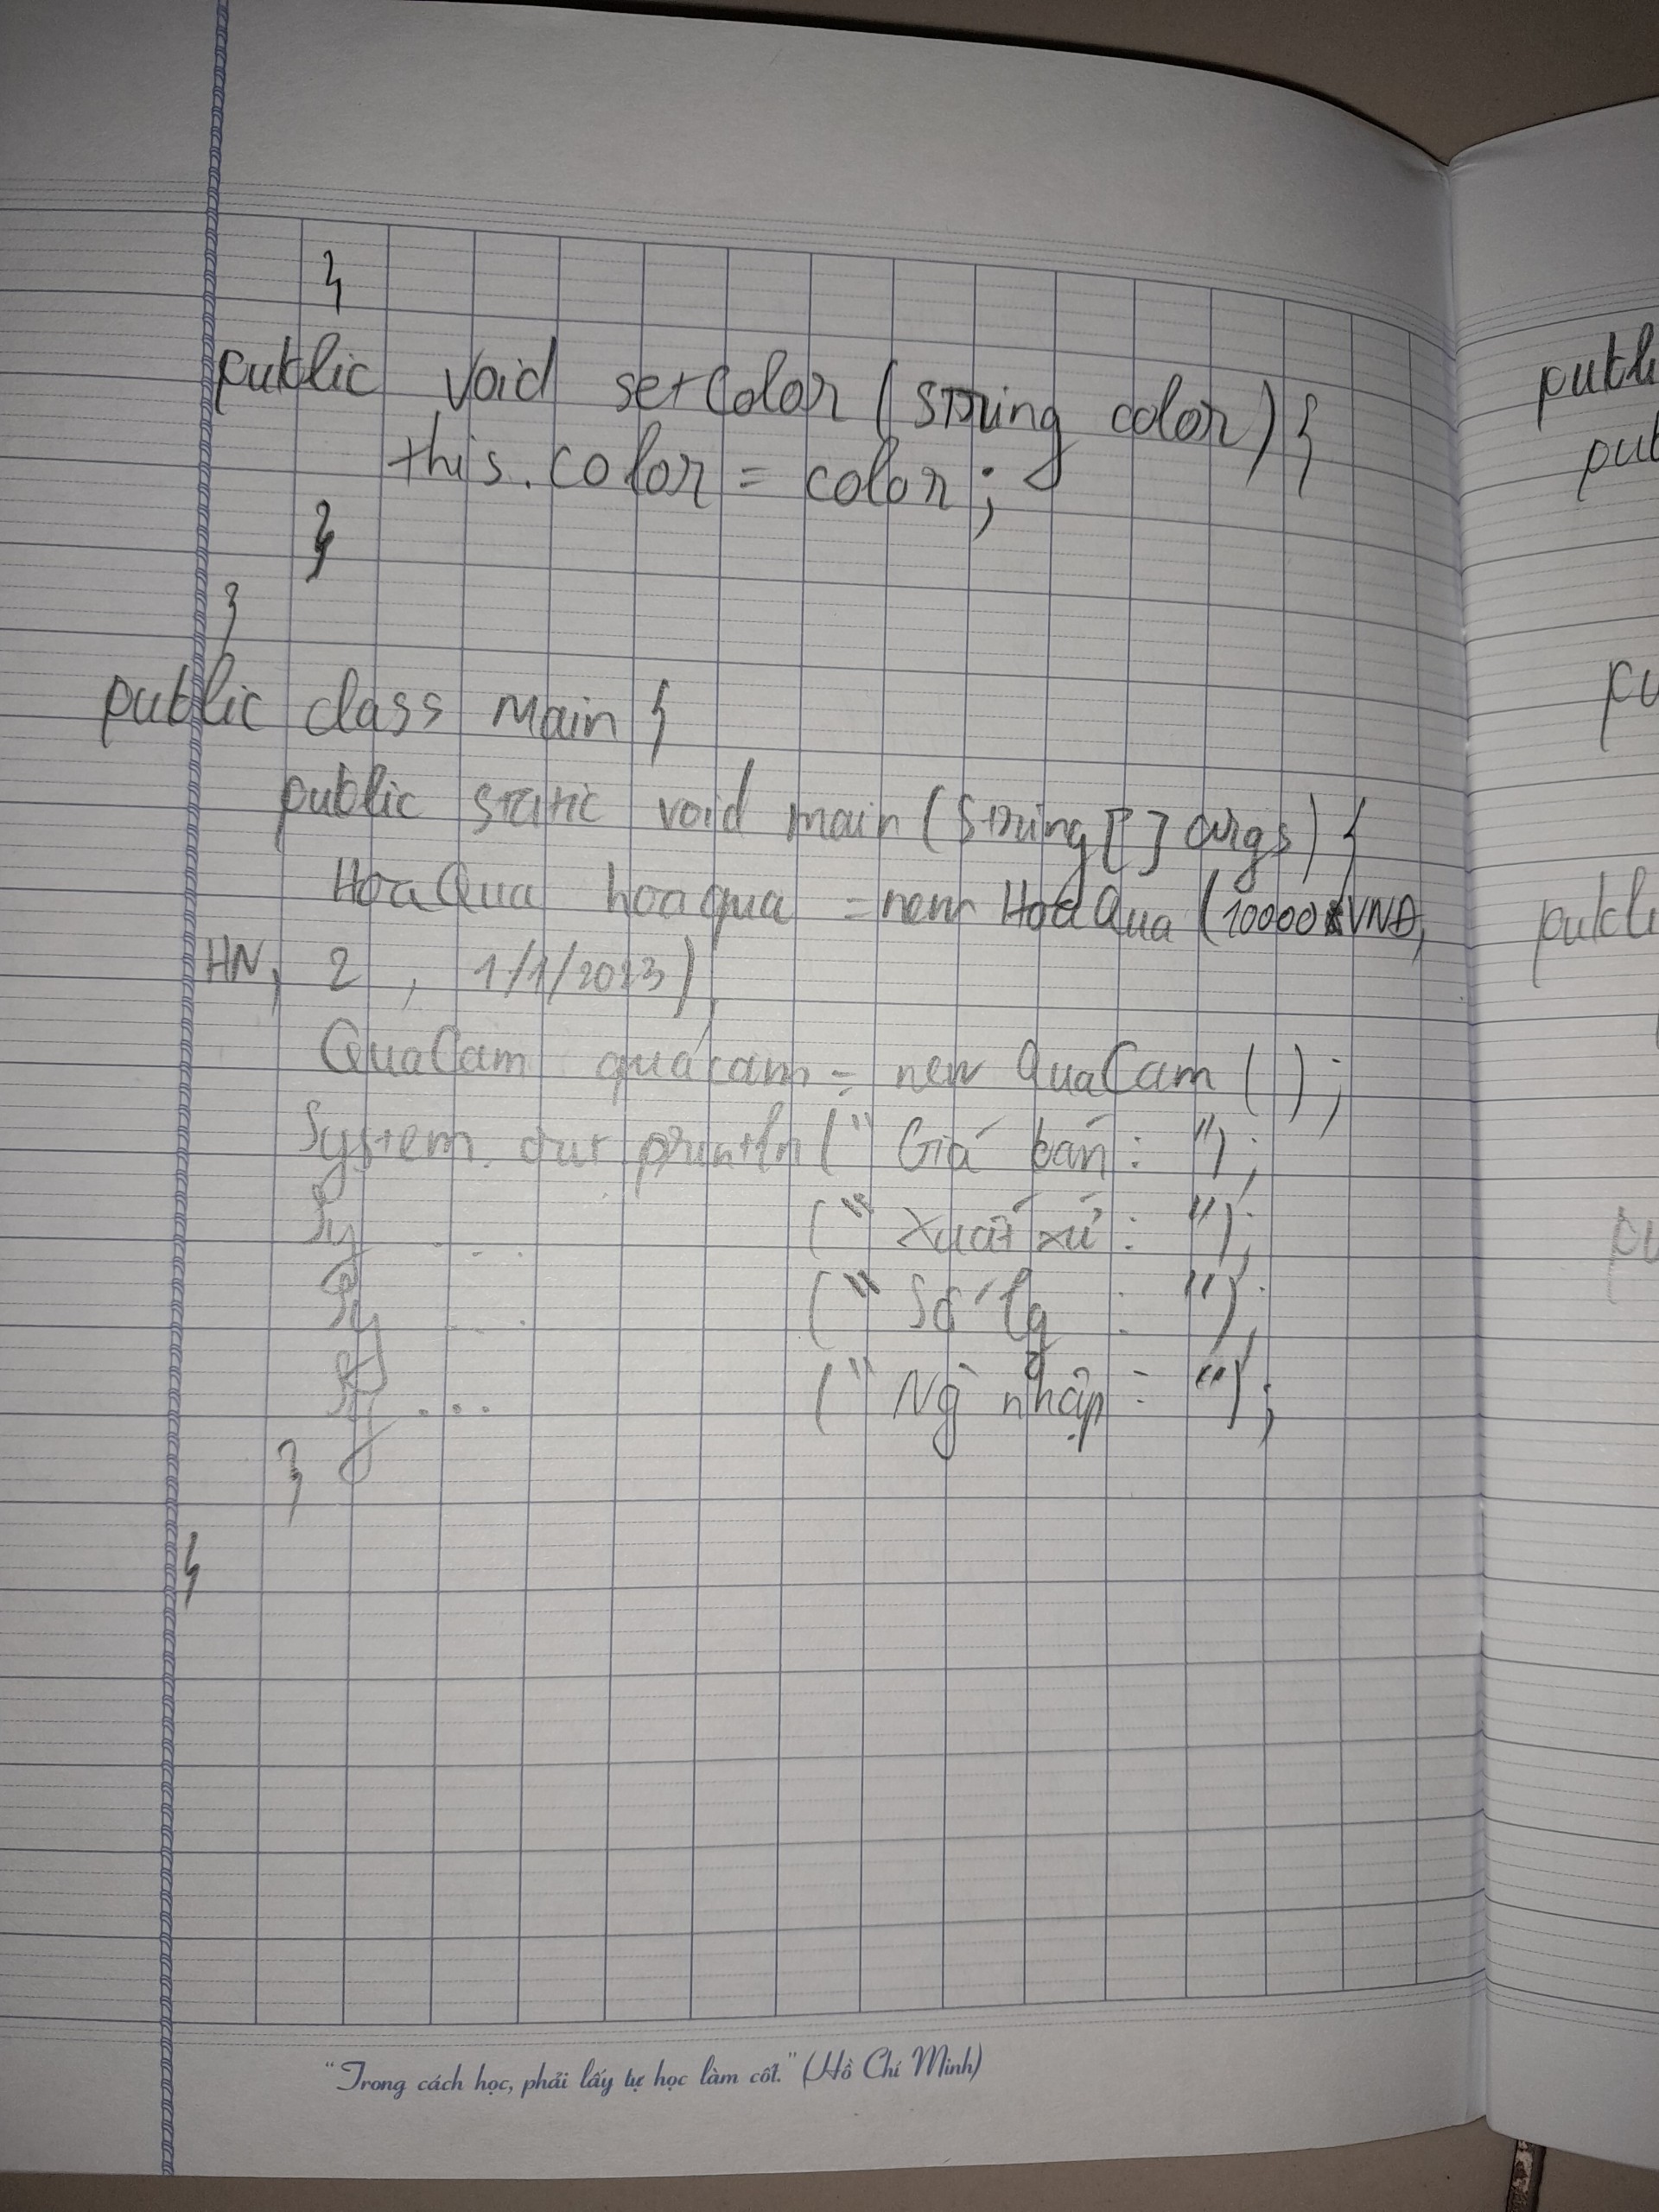 }
public void setColor (String color) {
this.color = color;
}
}
public class Main {
public static void main (String [] args) {
HoaQua hoaqua = new HoaQua (10000 VNĐ,
HN, 2 , 1/1/2023),
QuaCam quacam = new QuaCam ( ) ;
System. out. println (" Giá bán : ") ;
Sy ... (" Xuất xứ : ") ;
Sy ... (" Số lg : ") ;
Sy ... (" Ng nhập : ") ;
}
}
"Trong cách học, phải lấy tự học làm cốt." (Hồ Chí Minh)
publi
pub
pu
publi
pu